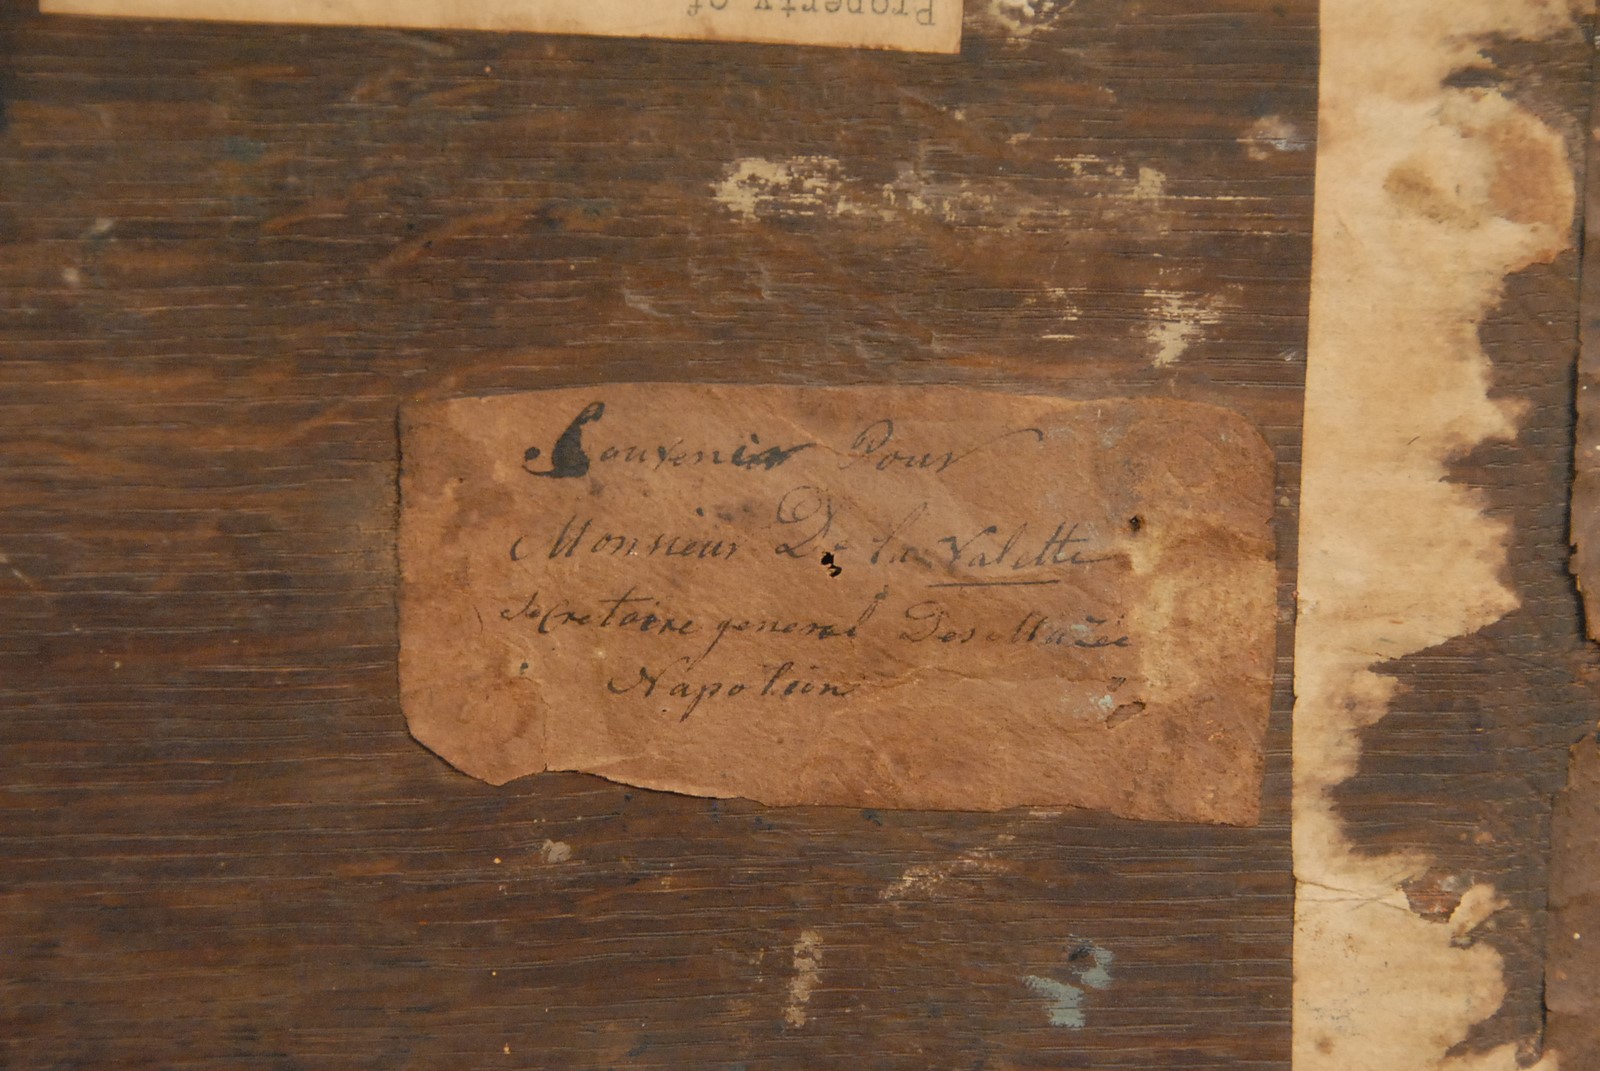 Property of
Souvenir Pour
Monsieur De la Valette
Secretaire general Des Muzée
Napoleon